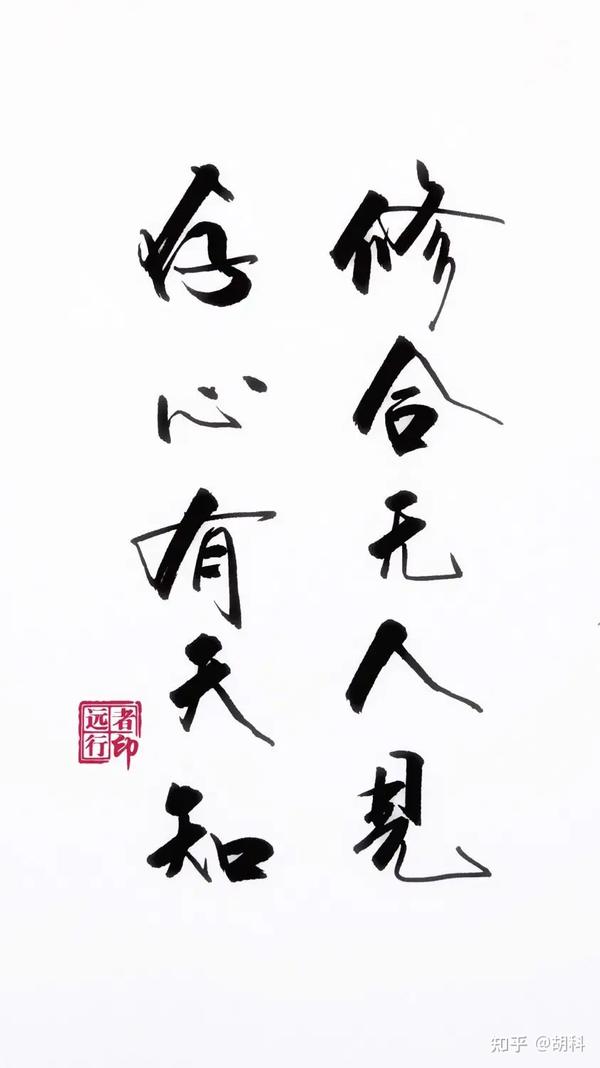 修合无人見
存心有天知
远行者印
知乎 @胡科